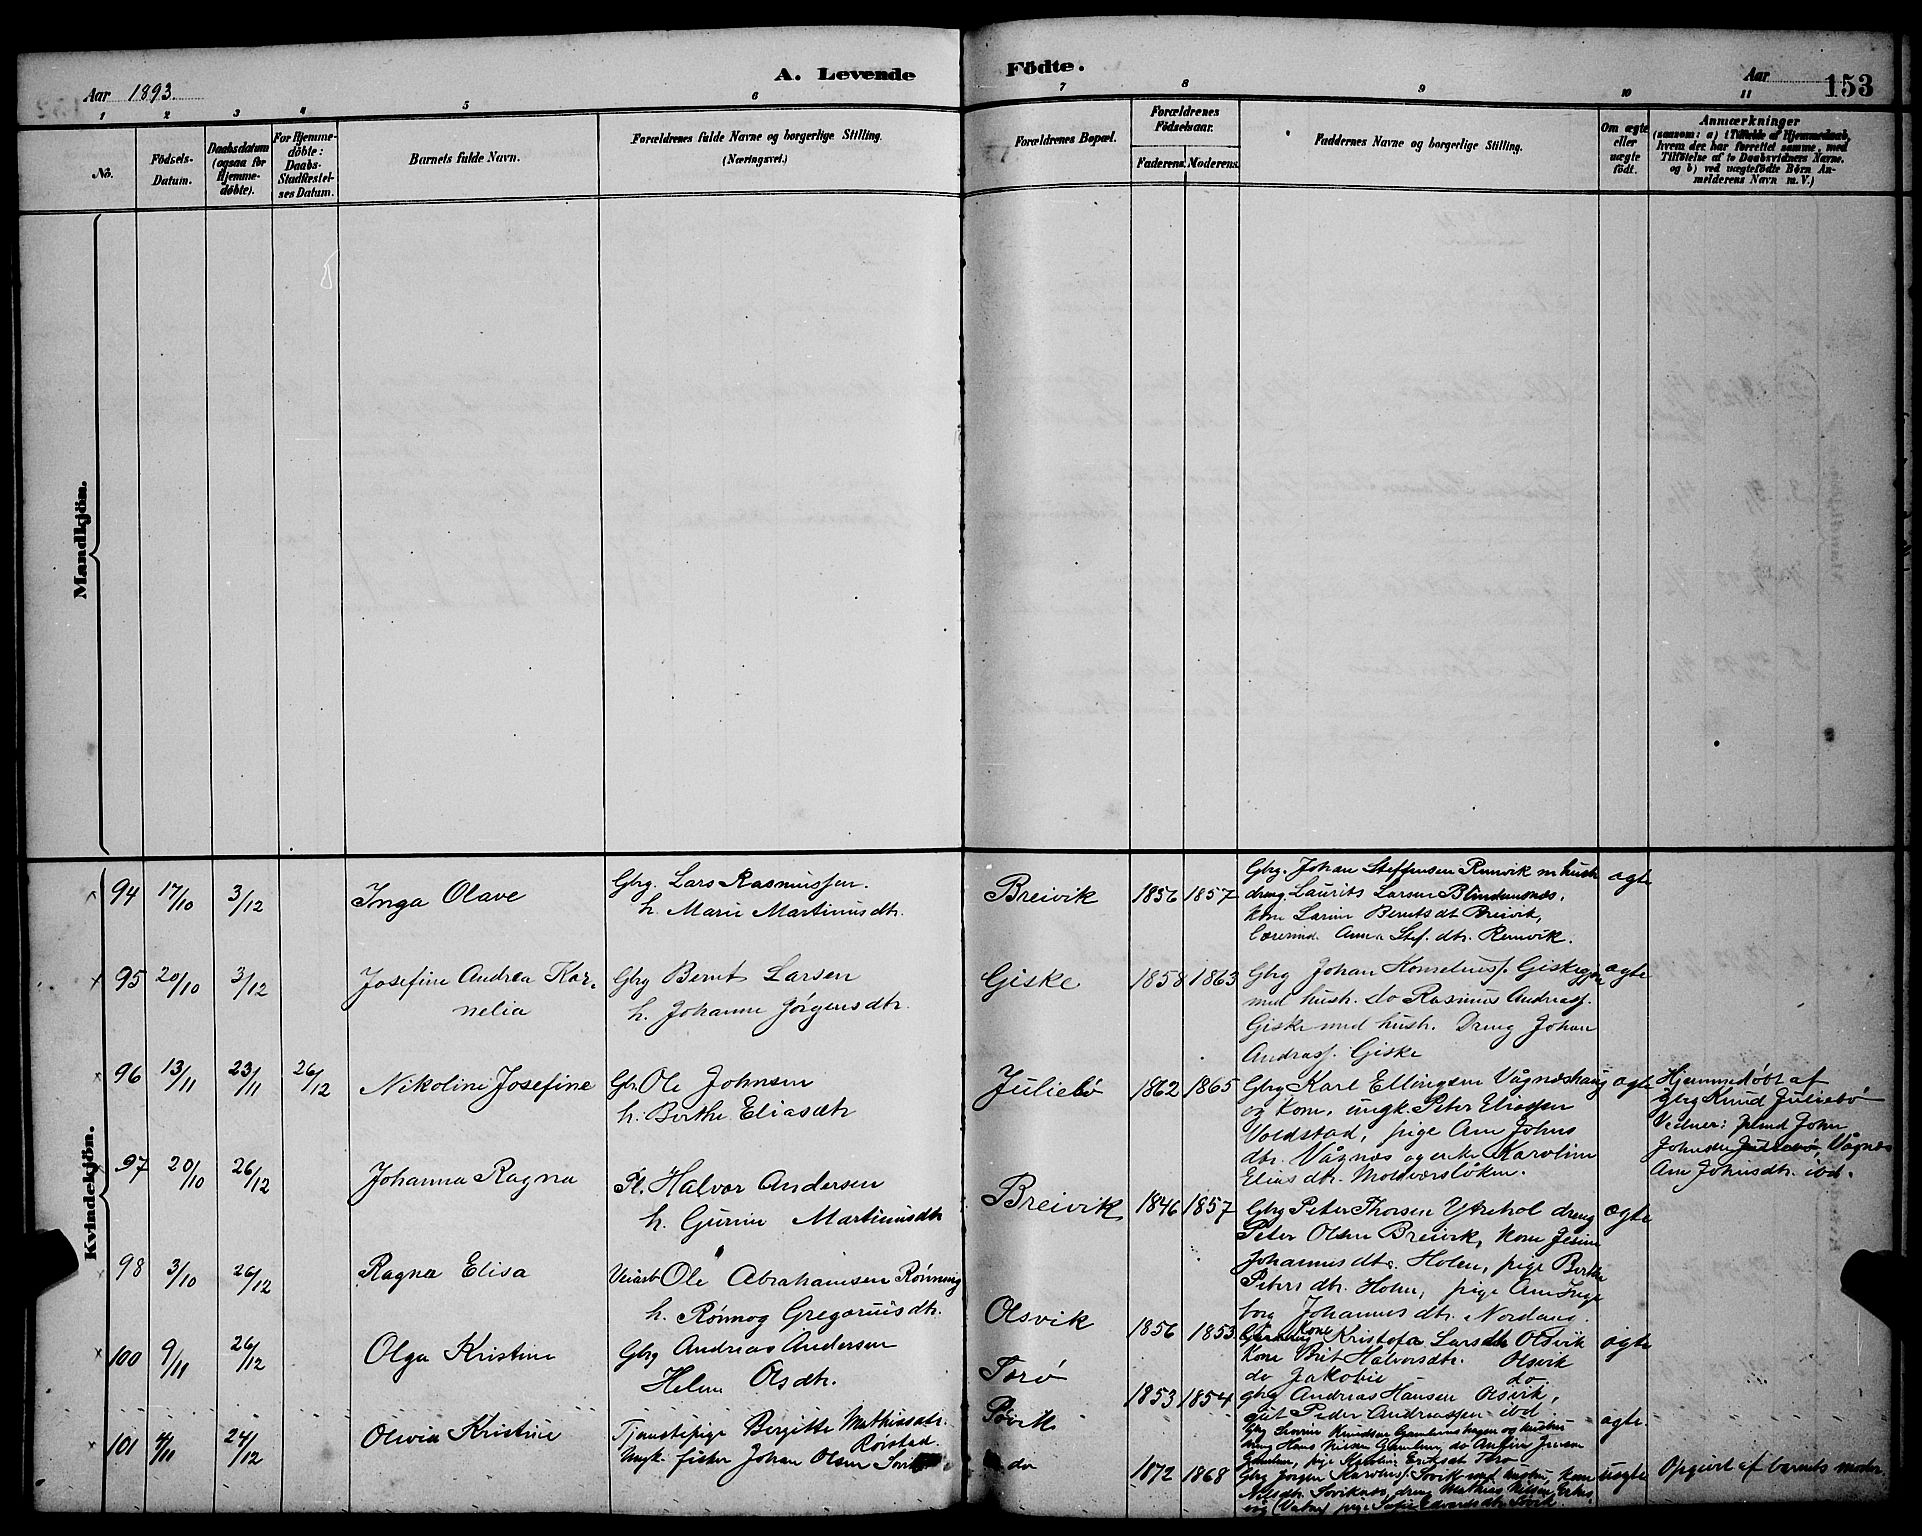 A. Levende Födte.
Aar 1893.
Aar 153
1 2 3 4 5 6 7 8 9 10 11
No.
Födsels-Datum.
Daabsdatum (ogsaa for Hjemme-döbte).
For Hjemme-döbte: Daabs-Stadfæstel-ses Datum.
Barnets fulde Navn.
Forældrenes fulde Navne og borgerlige Stilling. (Næringsvei.)
Forældrenes Bopæl.
Forældrenes Födselsaar.
Faderens. Moderens.
Faddernes Navne og borgerlige Stilling.
Om ægte eller uægte födt.
Anmærkninger
(saasom: a) i Tilfælde af Hjemmedaab, hvem der har forrettet samme, med Tilföielse af to Daabsvidners Navne, og b) ved uægtefödte Börn An-melderens Navn m.V.)
Mandkjön.
Kvindekjön.
94 17/10 3/12 Inga Olave
Gbrg. Lars Rasmussen.
h. Marie Martinusdtr.
Breivik 1856 1857
Gbrg. Johan Steffensen Remvik m hustr
dreng Laurits Larsen Blindensnæs,
kone Larine Berntsdt Breivik,
Lærerind. Anna Stef. dtr. Remvik.
ægte
95 20/10 3/12 Josefine Andrea Kor-
nelia
Gbrg Bernt Larsen
h. Johanne Jørgensdtr.
Giske 1858 1863
Gbrg Johan Kornelius. Giskegjr
med hustr. do Rasmus Andreasf.
Giske med hustr. Dreng Johan
Andreasf. Giske
ægte
96 13/11 23/11 26/12 Nikoline Josefine
Gbr. Ole Johnsen
h. Berthe Eliasdtr
Juliebö 1862 1865
Gbrg Karl Ellingsen Vågnæshaug
og kone, ungk. Peter Eliassen
Voldstad, pige Ane Johns
dtr. Vågnæs og enke Karoline
Eliasdtr. Moldværsløken.
ægte
Hjemmedøbt af
gbrg Knud Juliebö
Vidner: John
Johnsen Juliebö, Vågnes
Ane Johnsdtr. ibd.
97 20/10 26/12 Johanna Ragna
Pl. Halvor Andersen
h. Gurine Martinusdtr
Breivik 1846 1857
Gbrg Peter Thorsen Ytrehol dreng
Peter Olsen Breivik, kone Jesine
Johannesdtr. Holen, pige Berthe
Petersdtr. Holen, pige Ane Inge
borg Johannesdtr. Nordang.
ægte
98 3/10 26/12 Ragna Elisa
Veiarb Ole Abrahamsen Rönning
h. Rønnog Gregoriusdtr.
Olsvik 1856 1853
Kone Kristofa Larsdtr Olsvik
Kone Brit Halvorsdtr. Olsvik
do Jakobie do
gbrg Andreas Hansen Olsvik,
gut Peder Andreassen ibd
ægte
100 9/11 26/12 Olga Kristine
Gbrg Andreas Andersen
Helene Olsdtr.
Torö 1853 1854
Gbrg Severin Knudsen Gamlemshagen og hustru
dreng Hans Nilsen Gamlem, do Jensen
Gamlem, pige Eriksdt Torö
ægte
101 4/11 24/12 Olivia Kristine
Tjenestepige Bergitte Mathiasdtr.
Rörstad
Ungk. fisker Johan Olsen
Søvik
do 1872 1868
Gbrg Jørgen Karolius. Søvik med hustru, kone
Nilsdtr. Søviknes, dreng Mathias Nilsen
(Vatne) pige Edvardsdtr Søvik
uægte
Opgivet af barnets moder